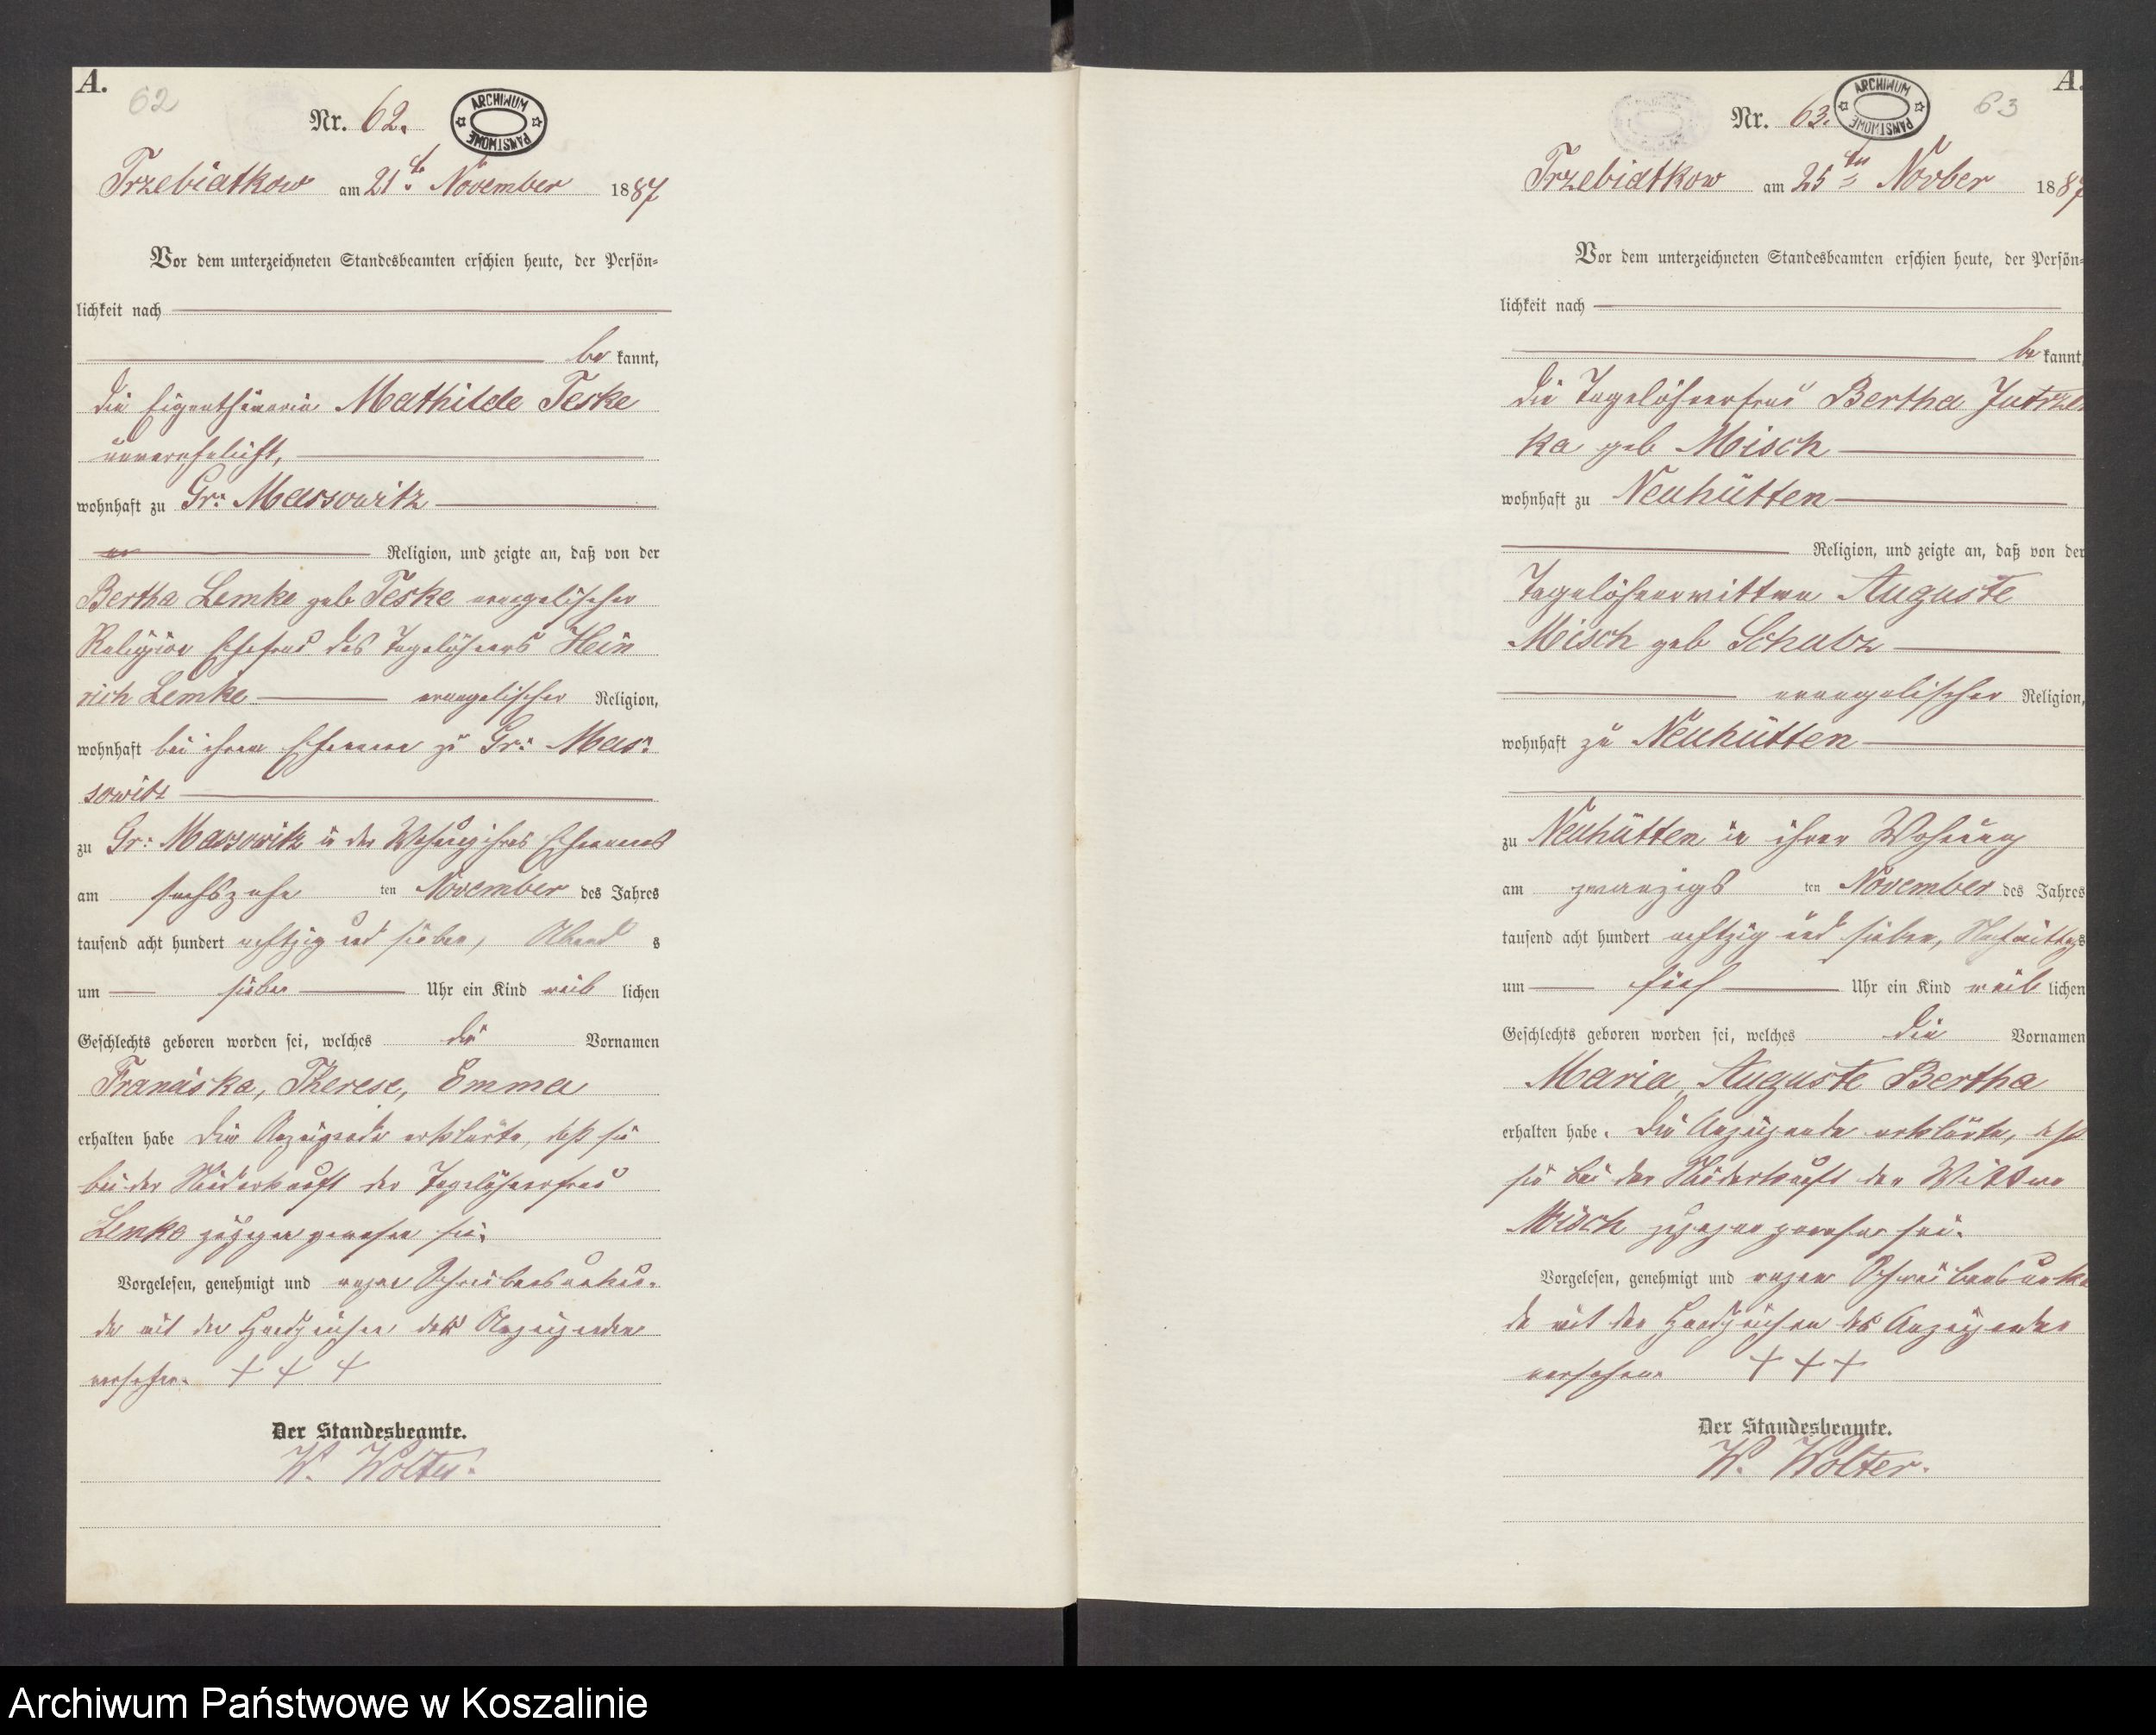 A.
62
Nr. 62.
ARCHIWUM PAŃSTWOWE
Trzebiatkow am 21ten November 1887
Vor dem unterzeichneten Standesbeamten erschien heute, der Persön-
lichkeit nach
be kannt,
die Eigenthümerin Mathilde Teske
unverehelicht,
wohnhaft zu Gr: Massowitz
Religion, und zeigte an, daß von der
Bertha Lemke geb Teske evangelischer
Religion Ehefrau des Tagelöhners Hein
rich Lemke evangelischer Religion,
wohnhaft bei ihrem Ehemann zu Gr: Mas:
sowitz
zu Gr: Massowitz in der Wohnung ihres Ehemannes
am sechszehn ten November des Jahres
tausend acht hundert achtzig und sieben, Abend s
um sieben Uhr ein Kind weib lichen
Geschlechts geboren worden sei, welches die Vornamen
Franciska, Therese, Emma
erhalten habe Die Anzeigende erklärte, daß sie
bei der Niederkunft der Tagelöhnerfrau
Lemke zugegen gewesen sei.
Vorgelesen, genehmigt und wegen Schreibensunkun-
de mit den Handzeichen des Anzeigenden
versehen. + + +
Der Standesbeamte.
W. Wolter.
A.
63
Nr. 63.
ARCHIWUM PAŃSTWOWE
Trzebiatkow am 25ten Novber 1887
Vor dem unterzeichneten Standesbeamten erschien heute, der Persön-
lichkeit nach
be kannt,
die Tagelöhnerfrau Bertha Jutrzen
ka geb Misch
wohnhaft zu Neuhütten
Religion, und zeigte an, daß von der
Tagelöhnerwittwe Auguste
Misch geb Schulz
evangelischer Religion,
wohnhaft zu Neuhütten
zu Neuhütten in ihrer Wohnung
am zwanzigs ten November des Jahres
tausend acht hundert achtzig und sieben, Nachmittags
um fünf Uhr ein Kind weib lichen
Geschlechts geboren worden sei, welches die Vornamen
Maria, Auguste Bertha
erhalten habe. Die Anzeigende erklärte, daß
sie bei der Niederkunft der Wittwe
Misch zugegen gewesen sei.
Vorgelesen, genehmigt und wegen Schreibensunkun
de mit den Handzeichen des Anzeigenden
versehen. + + +
Der Standesbeamte.
W. Wolter.
Archiwum Państwowe w Koszalinie